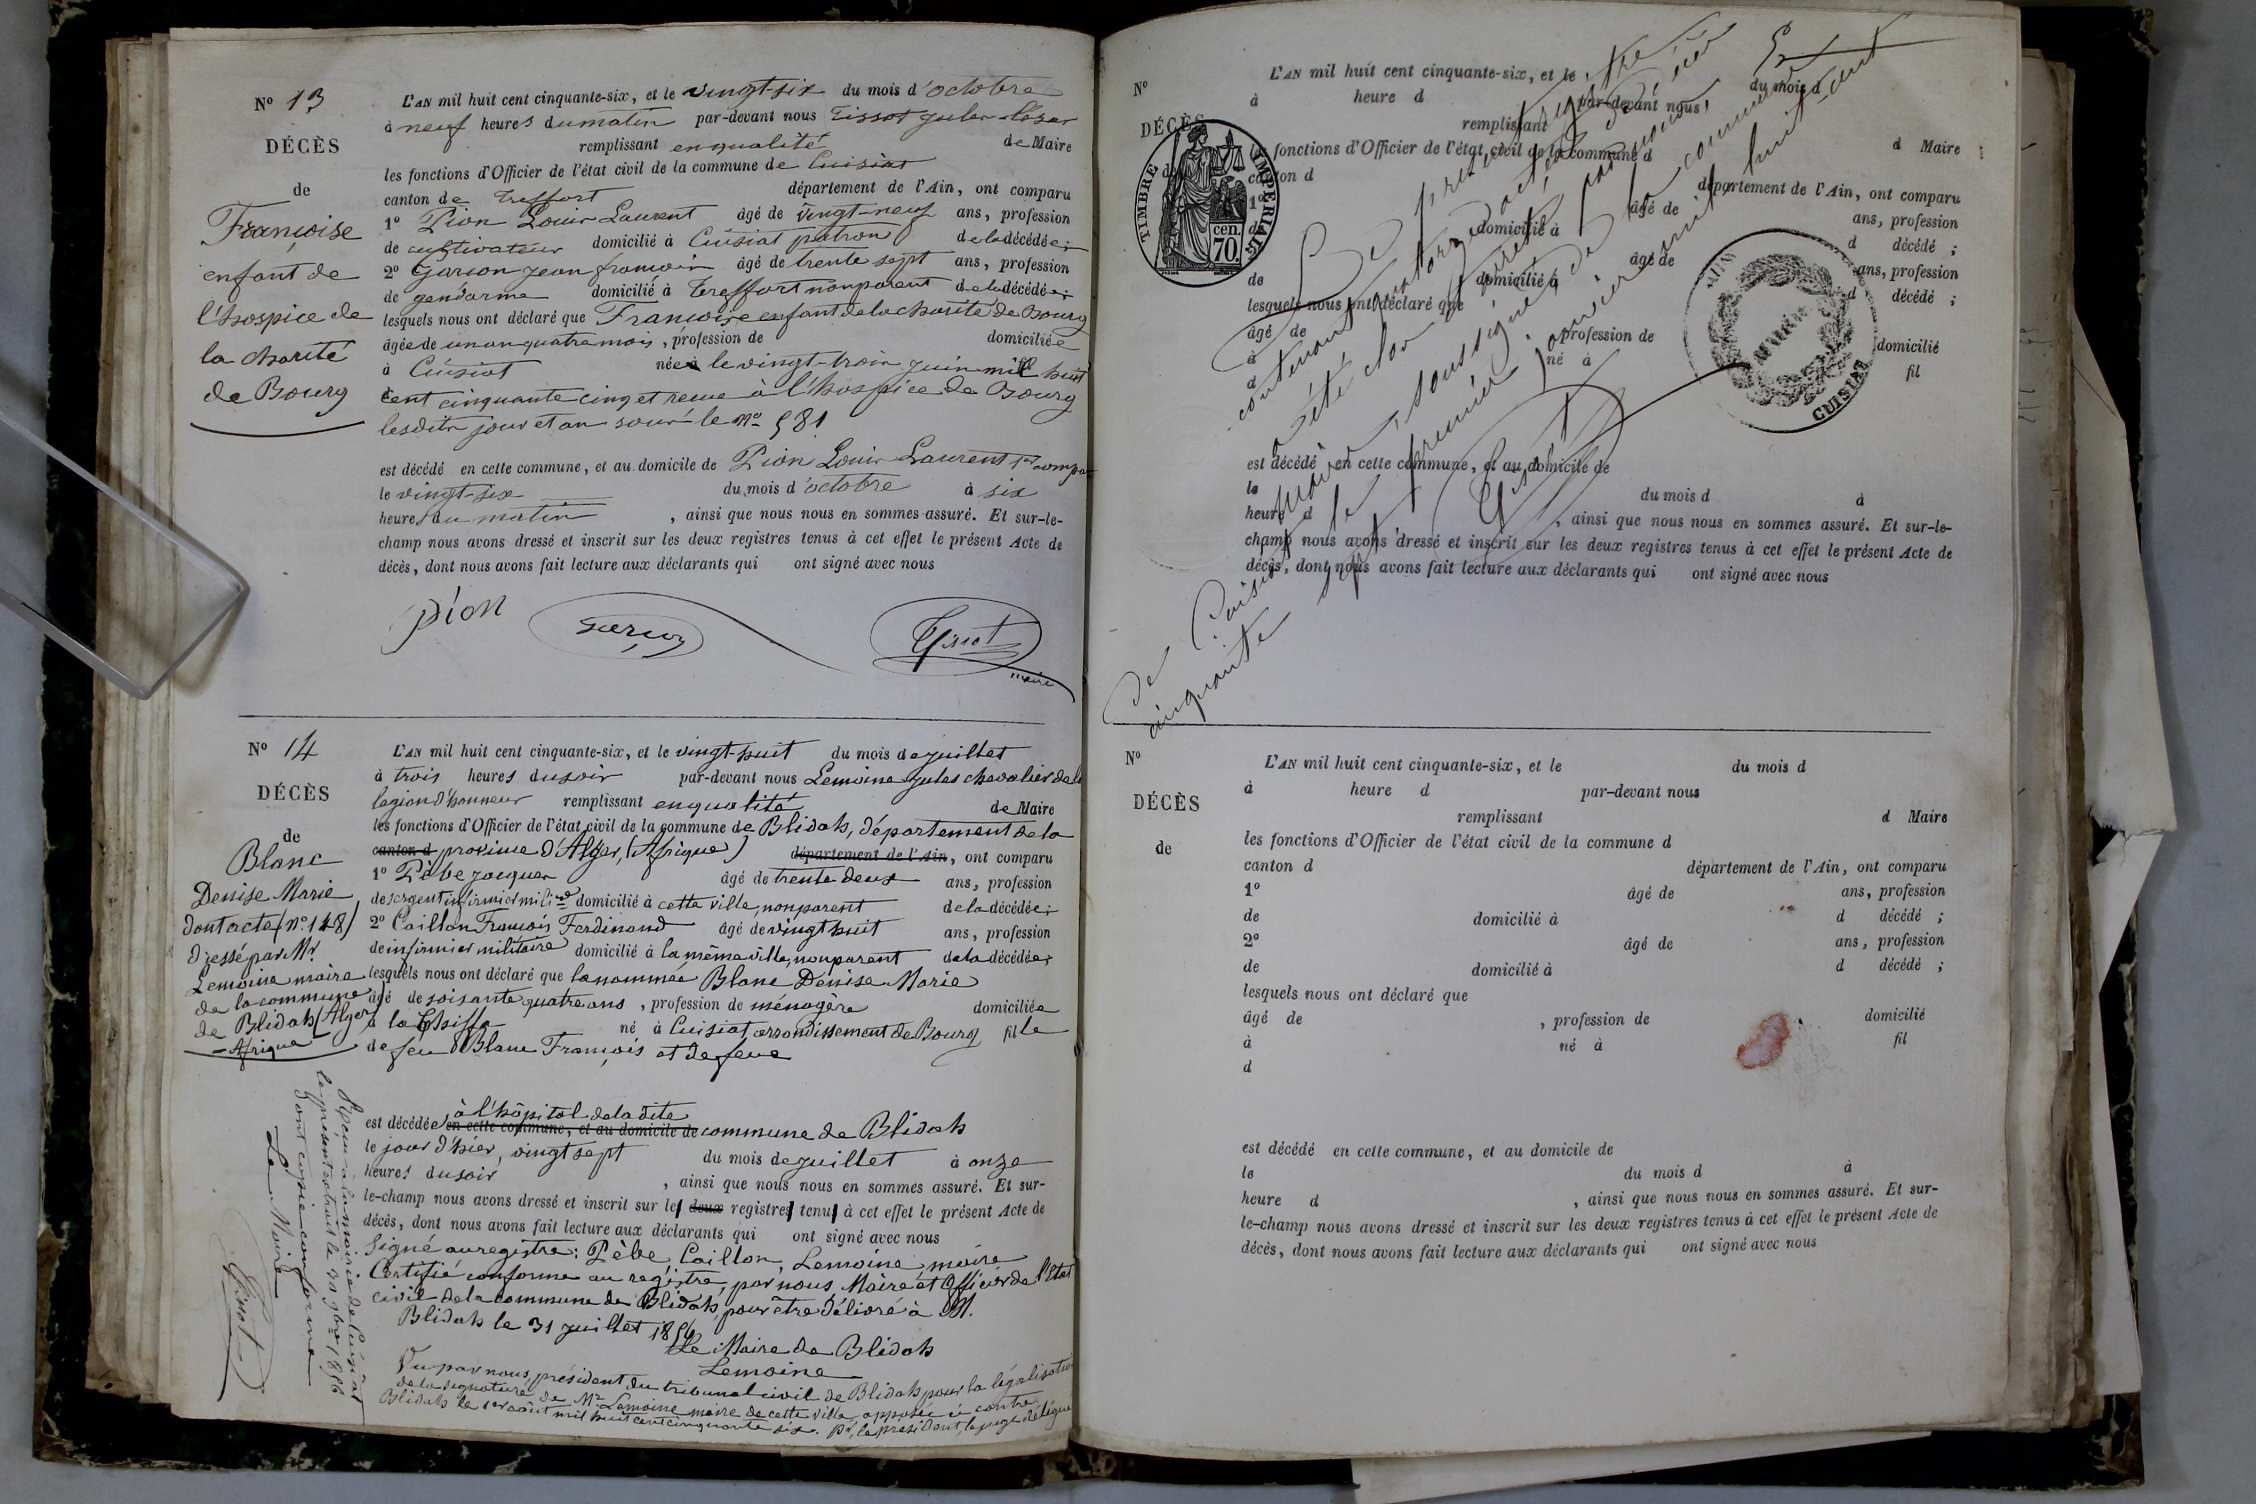 N° 13
DÉCÈS
de
Françoise
enfant de
l'hospice de
la charité
de Bourg
L'AN mil huit cent cinquante-six, et le vingt-six du mois d'octobre
à neuf heures du matin par-devant nous Tissot jules césar
remplissant en qualité de Maire
les fonctions d'Officier de l'état civil de la commune de Cuisiat
canton de Treffort département de l'Ain, ont comparu
1° Pion Louis Laurent âgé de vingt-neuf ans, profession
de cultivateur domicilié à Cuisiat patron de la décédée;
2° Garson jean françois âgé de trente sept ans, profession
de gendarme domicilié à Treffort non parent de la décédée;
lesquels nous ont déclaré que Françoise enfant de la charité de Bourg
âgée de un an quatre mois, profession de domiciliée
à Cuisiat née le vingt-trois juin mil huit
cent cinquante cinq et reçue à l'hospice de Bourg
lesdits jour et an sous le n° 581
est décédé en cette commune, et au domicile de Pion Louis Laurent 1er compar
le vingt-six du mois d'octobre à six
heures du matin, ainsi que nous nous en sommes assuré. Et sur-le-
champ nous avons dressé et inscrit sur les deux registres tenus à cet effet le présent Acte de
décès, dont nous avons fait lecture aux déclarants qui ont signé avec nous
pion Tissot
maire
N° 14
DÉCÈS
de
Blanc
Denise Marie
dont acte (n° 148)
dressé par Mr
Lemoine maire
de la commune
de Blidah (Alger)
- Afrique
L'AN mil huit cent cinquante-six, et le vingt-huit du mois de juillet
à trois heures du soir par-devant nous Lemoine jules chevalier de la
légion d'honneur remplissant en qualité de Maire
les fonctions d'Officier de l'état civil de la commune de Blidah, département de la
canton d province d'Alger, (Afrique) département de l'Ain, ont comparu
1° Pèbe jacques âgé de trente deux ans, profession
de sergent infirmier milre domicilié à cette ville, non parent de la décédée;
2° Caillon François Ferdinand âgé de vingt huit ans, profession
de infirmier militaire domicilié à la même ville, non parent de la décédée;
lesquels nous ont déclaré que la nommée Blanc Denise Marie
âgé de soisante quatre ans, profession de ménagère domiciliée
à la Chiffa né à Cuisiat arrondissement de Bourg fille
de feu Blanc François et de feue
est décédée à l'hôpital de la dite
en cette commune, et au domicile de commune de Blidah
le jour d'hier, vingt sept du mois de juillet à onze
heures du soir, ainsi que nous nous en sommes assuré. Et sur-
le-champ nous avons dressé et inscrit sur les deux registres tenus à cet effet le présent Acte de
décès, dont nous avons fait lecture aux déclarants qui ont signé avec nous
Signé au registre: Pèbe, Caillon, Lemoine, maire
Certifié conforme au registre, par nous, Maire et Officier de l'Etat
civil de la commune de Blidah, pour être délivré à M.
Blidah le 31 juillet 1856
Le Maire de Blidah
Lemoine
Vu par nous, président du tribunal civil de Blidah pour la légalisation
de la signature de Mr Lemoine maire de cette ville, apposée ci contre
Blidah le 1er août mil huit cent cinquante six. Pr le président, le juge délégué
Reçu à la mairie de Cuisiat
le présent extrait le 1856
dont copie conforme
Le Maire
Tissot
N°
DÉCÈS
TIMBRE IMPÉRIAL
cen.
70.
L'AN mil huit cent cinquante-six, et le du mois d
à heure d par-devant nous
remplissant d Maire
les fonctions d'Officier de l'état civil de la commune d
canton d département de l'Ain, ont comparu
1° âgé de ans, profession
domicilié à d décédé ;
âgé de ans, profession
de domicilié à d décédé ;
lesquels nous ont déclaré que
âgé de profession de domicilié
à né à fil
d
est décédé en cette commune, et au domicile de
le du mois d à
heure d, ainsi que nous nous en sommes assuré. Et sur-le-
champ nous avons dressé et inscrit sur les deux registres tenus à cet effet le présent Acte de
décès, dont nous avons fait lecture aux déclarants qui ont signé avec nous
Le présent registre
contenant quatorze actes de décès
a été clos et arrêté par nous,
maire soussigné de la commune
de Cuisiat le premier janvier mil huit cent
cinquante sept
Tissot
MAIRIE
CUISIAT
N°
DÉCÈS
de
L'AN mil huit cent cinquante-six, et le du mois d
à heure d par-devant nous
remplissant d Maire
les fonctions d'Officier de l'état civil de la commune d
canton d département de l'Ain, ont comparu
1° âgé de ans, profession
de domicilié à d décédé ;
2° âgé de ans, profession
de domicilié à d décédé ;
lesquels nous ont déclaré que
âgé de, profession de domicilié
à né à fil
d
est décédé en cette commune, et au domicile de
le du mois d à
heure d, ainsi que nous nous en sommes assuré. Et sur-
le-champ nous avons dressé et inscrit sur les deux registres tenus à cet effet le présent Acte de
décès, dont nous avons fait lecture aux déclarants qui ont signé avec nous